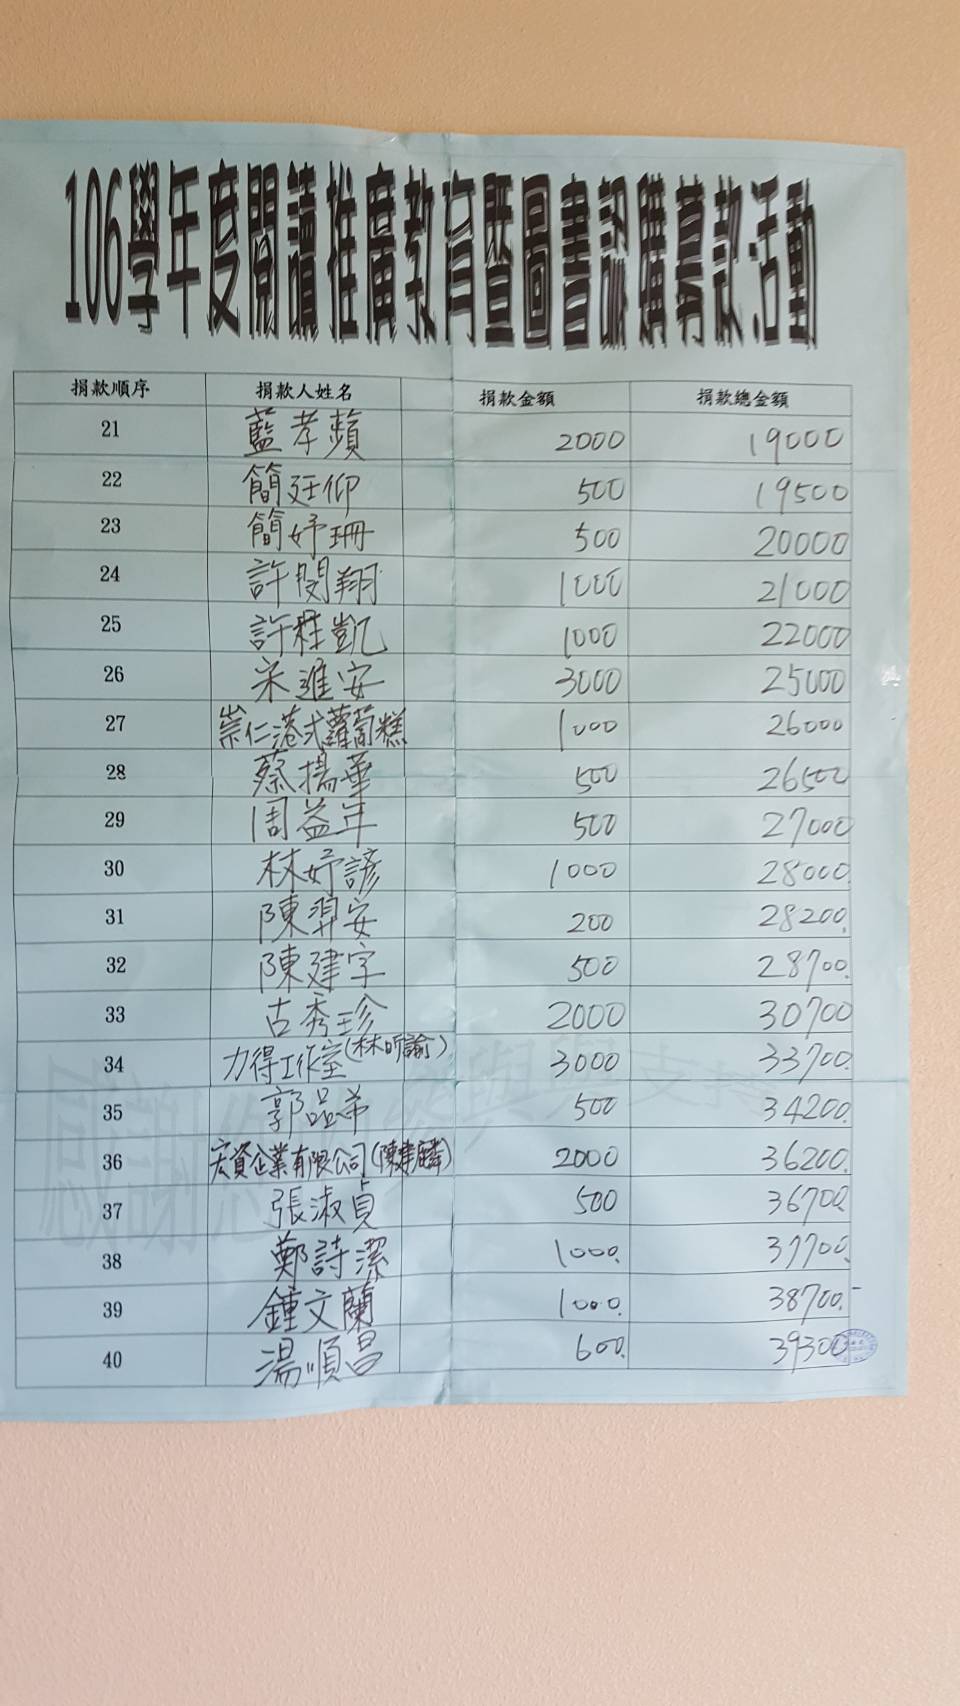 106學年度閱讀推廣教育暨圖書認購募款活動
捐款順序 捐款人姓名 捐款金額 捐款總金額
21 藍孝蘋 2000 19000
22 簡廷仰 500 19500
23 簡妤珊 500 20000
24 許閔翔 1000 21000
25 許程凱 1000 22000
26 宋進安 3000 25000
27 崇仁港式蘿蔔糕 1000 26000
28 蔡揚華 500 26500
29 周益年 500 27000
30 林妤諺 1000 28000.
31 陳羿安 200 28200.
32 陳建宇 500 28700.
33 古秀珍 2000 30700
34 力得工作室(林昕諭) 3000 33700.
35 郭品希 500 34200.
36 宏資企業有限公司(陳建麟) 2000 36200.
37 張淑貞 500 36700.
38 鄭詩潔 1000. 37700.
39 鍾文蘭 1000. 38700.-
40 湯順昌 600. 39300